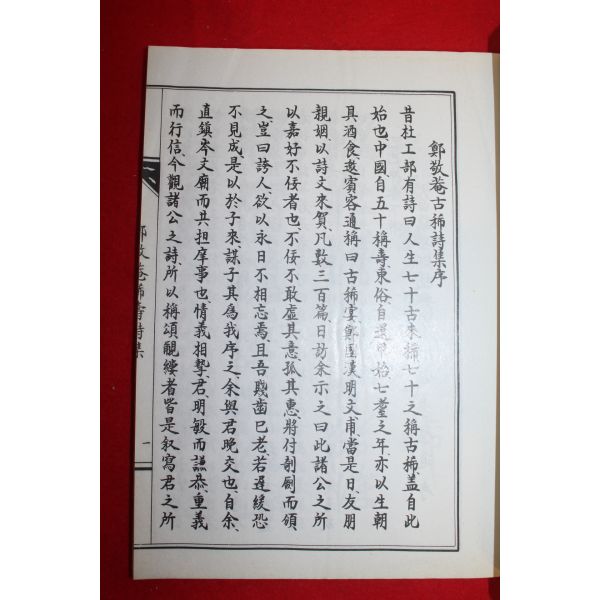 鄭敬菴古稀詩集序
昔杜工部有詩曰人生七十古來稀七十之稱古稀盖自此
始也中國自五十稱壽東俗自還甲始七耋之年亦以生朝
具酒食邀賓客通稱曰古稀宴鄭國漢明文甫當是日友朋
親姻以詩文來賀凡數三百篇日訪余示之曰此諸公之所
以嘉好不佞者也不佞不敢虛其意孤其惠將付剞劂而頒
之豈曰誇人欲以永日不相忘焉且吾賤齒已老若遲緩恐
不見成是以於子來謀子其爲我序之余與君晚交也自余
直鎭岑文廟而共担庠事也情義相摯君明敏而謙恭重義
而行信今觀諸公之詩所以稱頌覼縷者皆是叙寫君之所
鄭敬菴稀壽詩集
一